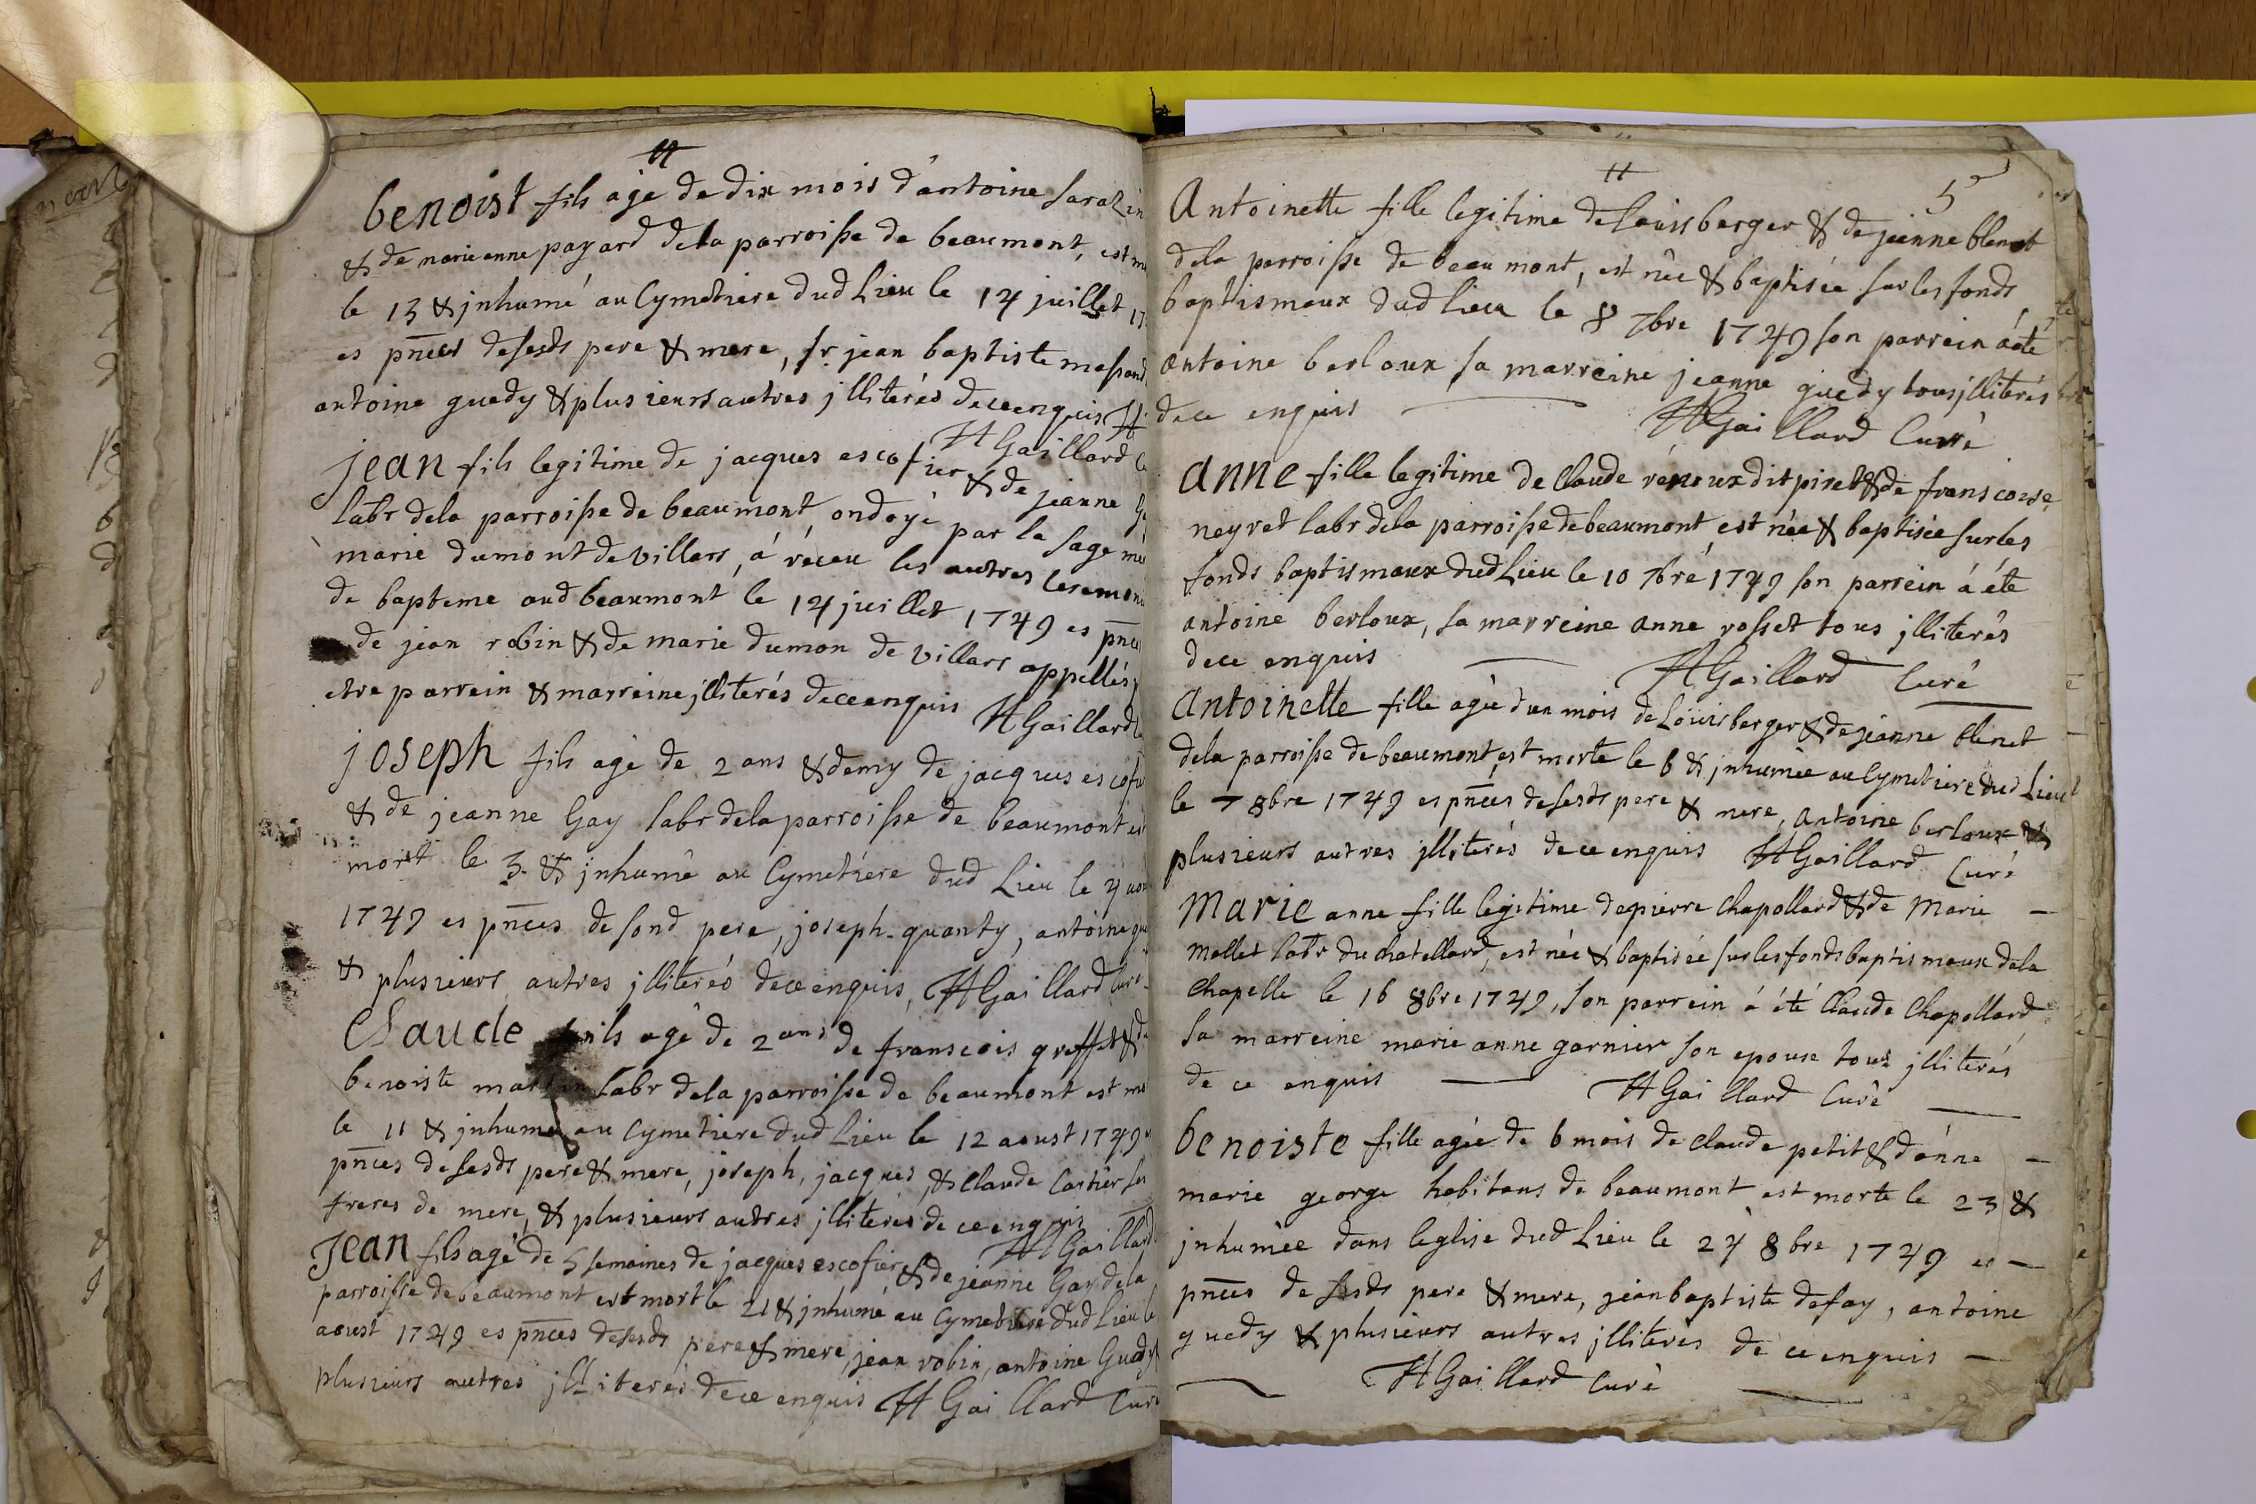 benoist fils agé de dix mois d'antoine sarazin
& de marieanne payard dela parroisse de beaumont, est
le 13 & jnhumé au Cymetiere dud Lieu le 14 juillet
es pnces desesds pere & mere, sr jean baptiste
antoine guedy & plusieurs autres jlliterés dece enquis
HGaillard
jean fils legitime de jacques escofier & de jeanne
labr dela parroisse de beaumont, ondoyé par la sage
marie dumont de villars, á réceu les autres
de bapteme aud beaumont le 14 juillet 1749 es
de jean robin & de marie dumon de villars appellés
etre parrein & marreine jlliterés dece enquis
HGaillard
joseph fils agé de 2 ans & demy de jacques
& de jeanne Gay labr dela parroisse de beaumont
mort le 3 & jnhumé au Cymetiere dud Lieu le 4
1749 es pnces de sond pere, joseph quanty, antoine
& plusieurs autres jlliterés dece enquis, HGaillard Curé
Claude fils agé de 2 ans de franscois greffet &
benoiste labr dela parroisse de beaumont est
le 11 & jnhumé au Cymetiere dud Lieu le 12 aoust 1749
pnces desesds pere & mere, joseph, jacques, & Claude Cartier ses
freres de mere, & plusieurs autres jlliterés de ce enquis
HGaillard
Jean fils agé de 5 semaines de jacques escofier & de jeanne Gay dela
parroisse de beaumont est mort le 21 & jnhumé au Cymetiere dud Lieu le
aoust 1749 es pnces desesds pere & mere, jean robin, antoine Guedy
plusieurs autres jlliterés dece enquis HGaillard Curé
5
Antoinette fille legitime de Loüis berger & de jeanne blenet
dela parroisse de beaumont, est née & baptisée sur les fonds
baptismaux dud Lieu le 8 7bre 1749 son parrein á été
antoine berloux sa marreine jeanne guedy tous jlliterés
dece enquis
HGaillard Curé
anne fille legitime de Claude dit piret & de franscoise
neyret labr dela parroisse de beaumont, est née & baptisée sur les
fonds baptismaux dud Lieu le 10 7bre 1749 son parrein á été
antoine berloux, sa marreine anne rosset tous jlliterés
dece enquis
HGaillard Curé
Antoinette fille agée d'un mois de Loüis berger & de jeanne blenet
dela parroisse de beaumont, est morte le 6 & jnhumée au Cymetiere dud Lieu
le 7 8bre 1749 es pnces desesds pere & mere, antoine berloux &
plusieurs autres jlliterés dece enquis HGaillard Curé
Marie anne fille legitime de pierre Chapollard & de Marie
mallet labr du chatellard, est née & baptisée sur les fonds baptismaux dela
Chapelle le 16 8bre 1749, son parrein á été Claude Chapollard
sa marreine marie anne garnier son epouse tous jlliterés
de ce enquis
HGaillard Curé
benoiste fille agée de 6 mois de Claude petit & d'anne
marie george habitans de beaumont est morte le 23 &
jnhumée dans leglise dud Lieu le 24 8bre 1749 es
pnces de sesds pere & mere, jean baptiste defay, antoine
guedy & plusieurs autres jlliterés de ce enquis
HGaillard Curé